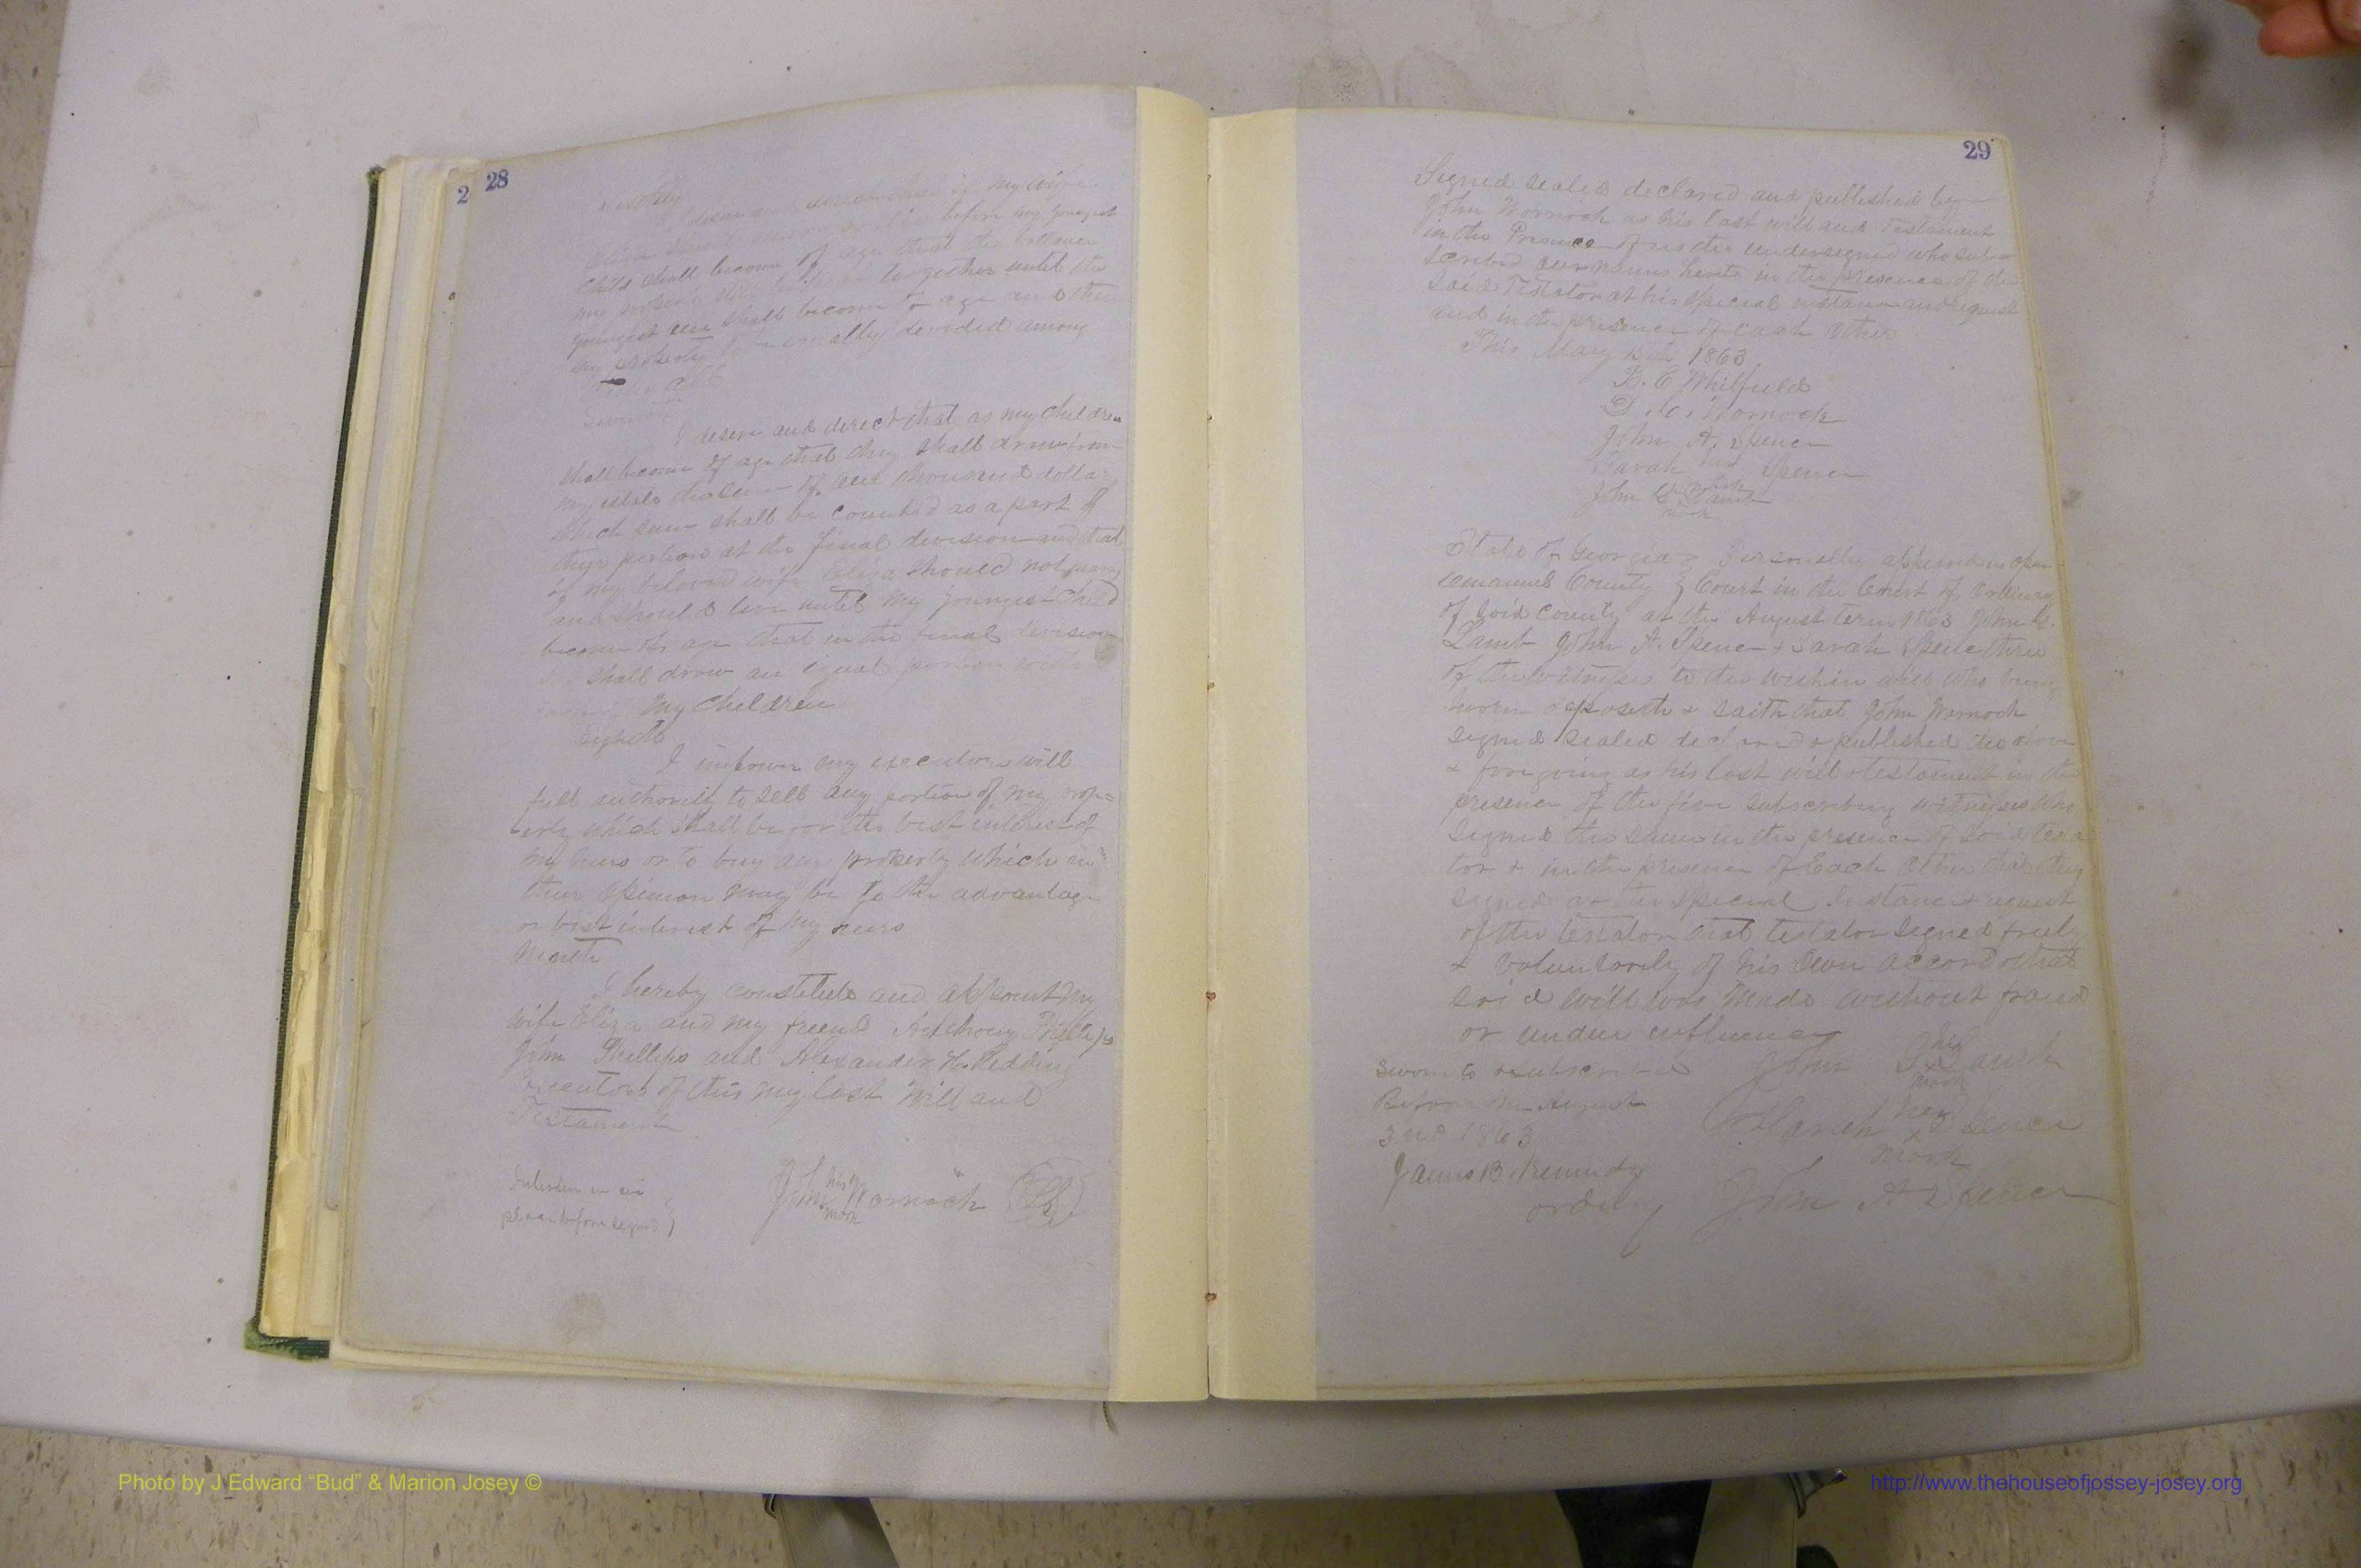 28
my wife
before my youngest
Child shall become of age that the
my property shall together until the
youngest one shall become of age and then
my property to be equally devided among
I desire and direct that as my children
shall become of age that they shall draw from
my estate the sum of one thousand dollars
which sum shall be counted as a part of
their portion at the final devision and that
if my beloved wife Eliza should not marry
and should live until my youngest child
become of age that in the final devision
shall draw an equal portion with
my children
Eighth
I empower my executors will
full authority to sell any portion of my prop=
erty which shall be for the best interest of
my heirs or to buy any property which in
their opinion may be to the advantage
or best interest of my heirs
Nineth
I hereby constitute and appoint my
wife Eliza and my friend Anthony Phillips
John Phillips and Alexander H. Redding
Executors of this my last will and
Testament
place before signed
John his mark Warnock
29
Signed sealed declared and published by
John Warnock as his last will and Testament
in the Presence of us the undersigned who sub=
scribed our names hereto in the presence of the
said Testator at his special instance and request
and in the presence of each other
This May 1863
B. C Whitfield
D. C. Warnock
John A. Spence
Sarah Spence
John C Lamb
mark
State of Georgia Personally appeared in open
Emanuel County } Court in the Court of Ordinary
of said county at the August term 1863 John C.
Lamb John A. Spence & Sarah Spence three
of the witnesses to the within will who being
sworn deposeth & saith that John Warnock
signed sealed declared & published the above
& foregoing as his last will & testament in the
presence of the five subscribing witnesses who
signed the same in the presence of said testa
tor & in the presence of Each other that they
signed at the special instance & request
of the testator that testator signed freely
& voluntarily of his own accord & that
said will was made without fraud
or undue influence
Sworn to & subscribed John his x mark Lamb
Before me August
3rd 1863 Sarah her x mark Spence
James B. Kennedy
ordinary John A Spence
Photo by J Edward “Bud” & Marion Josey ©
http://www.thehouseofjossey-josey.org